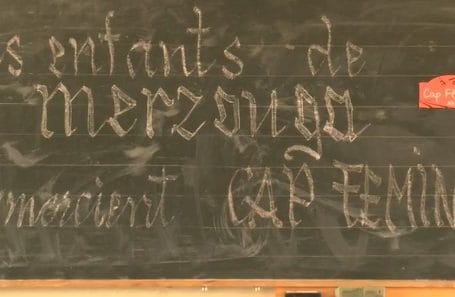 s enfants de
merzouga
rmercient CAP FEMIN
Cap Fé